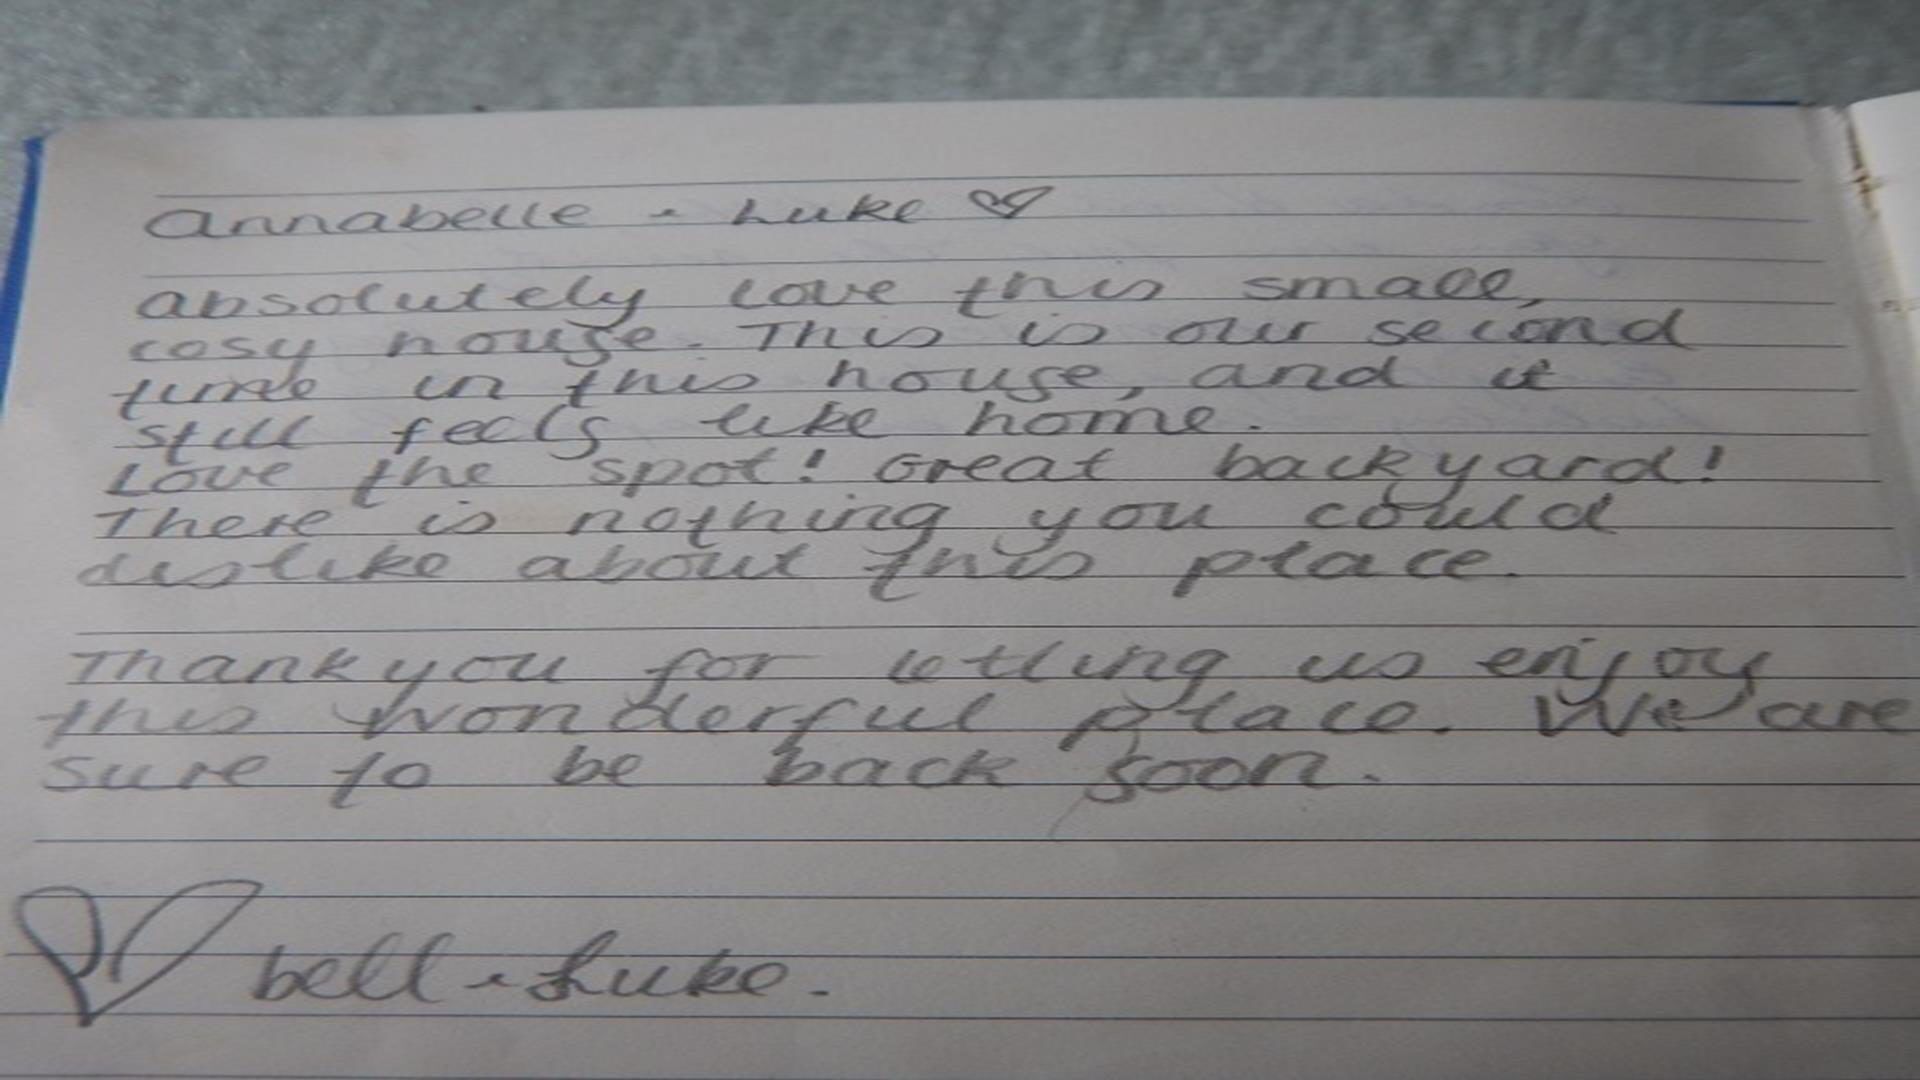 Annabelle + Luke ♡
Absolutely love this small,
cosy house. This is our second
time in this house, and it
still feels like home.
Love the spot! Great backyard!
There is nothing you could
dislike about this place.
Thankyou for letting us enjoy
this wonderful place. We are
sure to be back soon.
♡ bell + Luke.